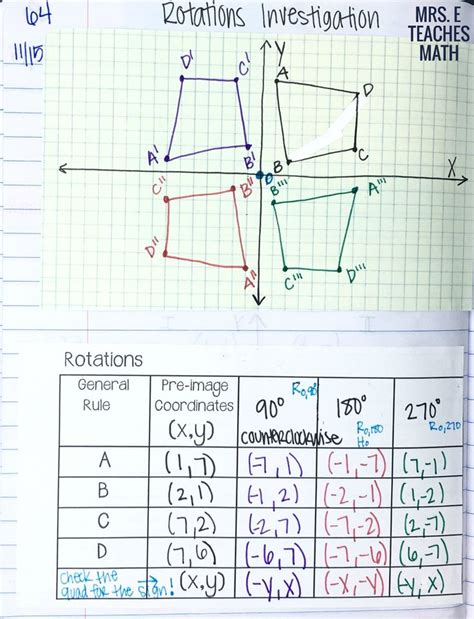 64
Rotations Investigation
MRS. E
TEACHES
MATH
11/15
Y
D' C' A D
A' B' B C
X
O
C'' B'' B''' A'''
D''
A'' C''' D'''
Rotations
General Rule Pre-image Coordinates (x,y) 90° R0,90° counterclockwise 180° R0,180 H0 270° R0,270
A (1,7) (-7,1) (-1,-7) (7,-1)
B (2,1) (-1,2) (-2,-1) (1,-2)
C (7,2) (-2,7) (-7,-2) (2,-7)
D (7,6) (-6,7) (-7,-6) (6,-7)
check the quad for the sign! → (x,y) (-y,x) (-x,-y)